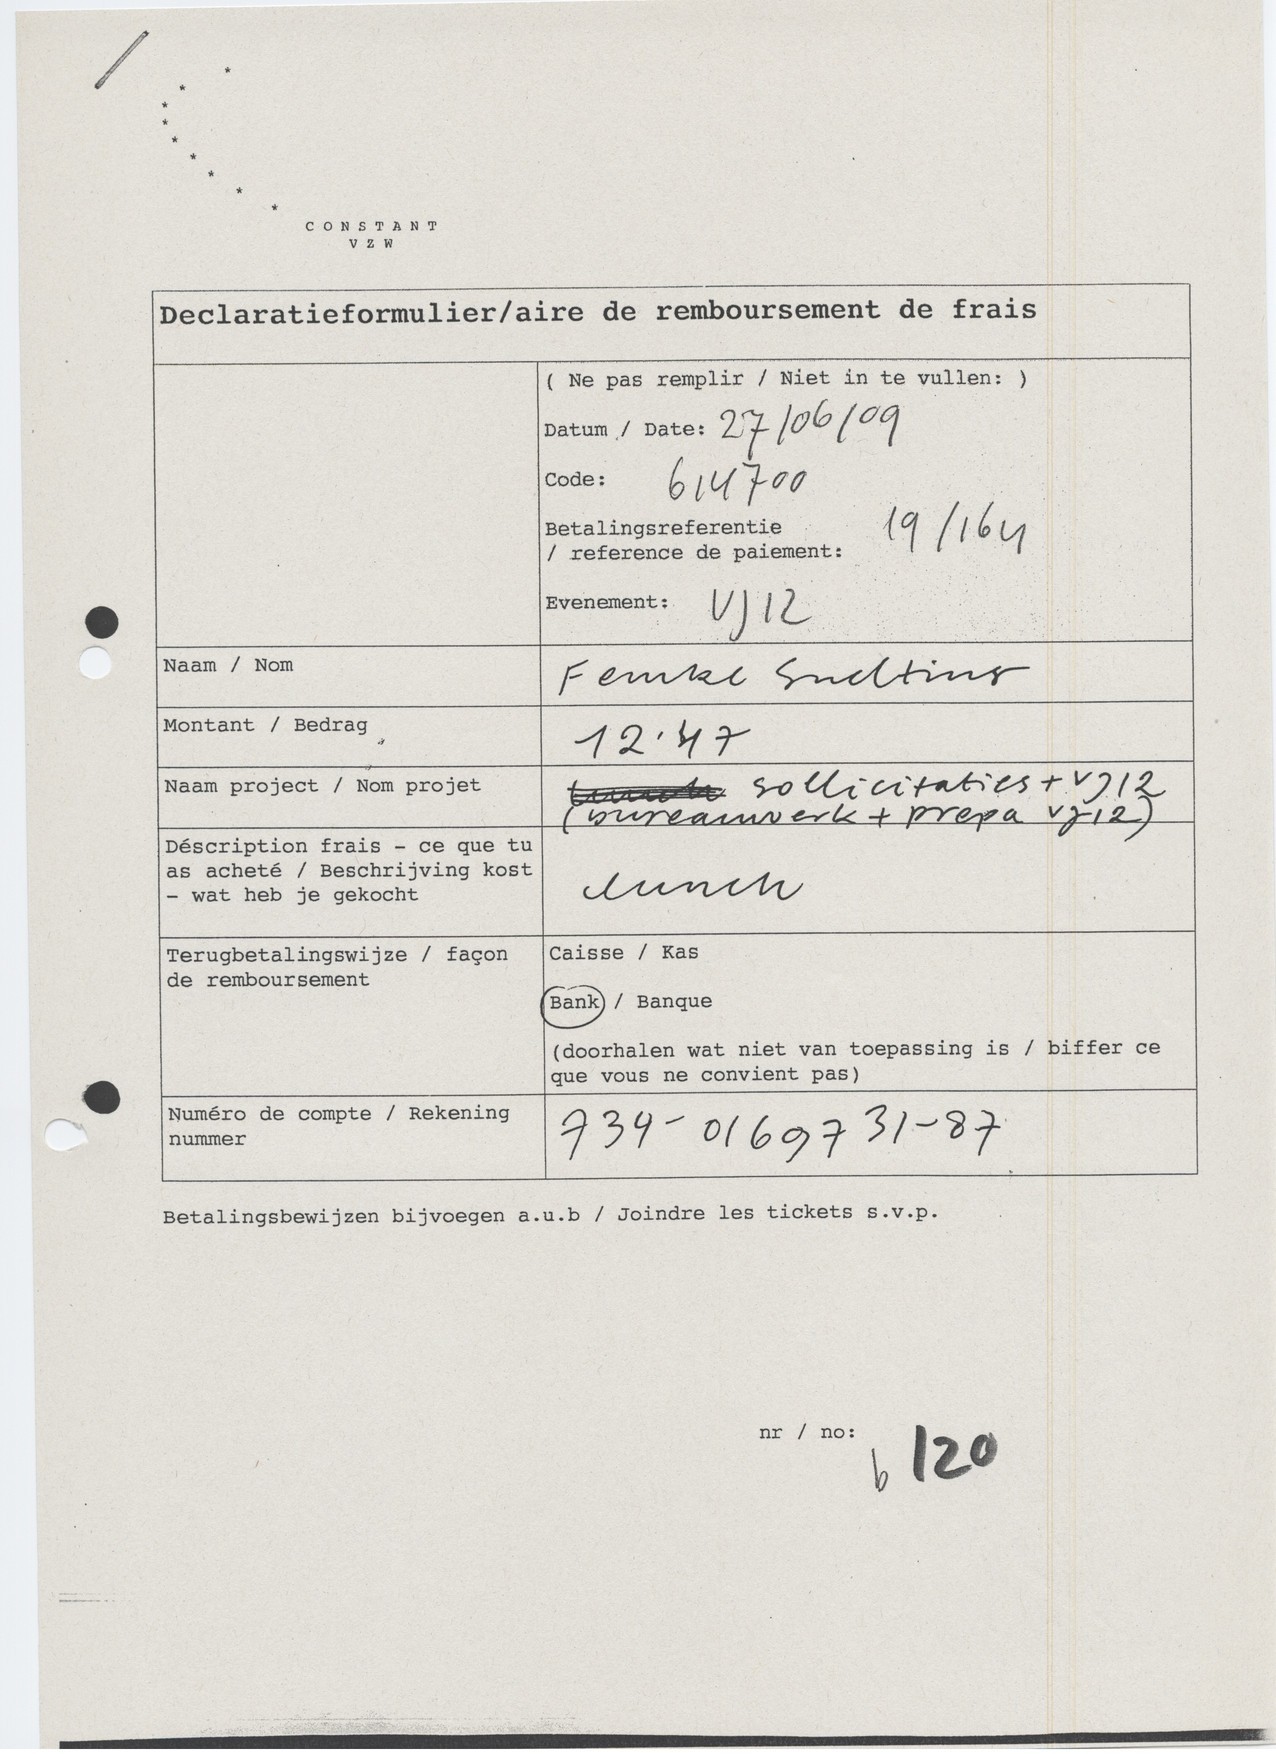 CONSTANT
VZW
Declaratieformulier/aire de remboursement de frais
( Ne pas remplir / Niet in te vullen: )
Datum / Date: 27/06/09
Code: 614700
Betalingsreferentie
/ reference de paiement: 19/164
Evenement: VJ12
Naam / Nom Femke Snelting
Montant / Bedrag 12.47
Naam project / Nom projet sollicitaties + VJ12
(bureauwerk + prepa VJ12)
Déscription frais - ce que tu
as acheté / Beschrijving kost
- wat heb je gekocht
lunch
Terugbetalingswijze / façon
de remboursement
Caisse / Kas
Bank / Banque
(doorhalen wat niet van toepassing is / biffer ce
que vous ne convient pas)
Numéro de compte / Rekening
nummer
734-0169731-87
Betalingsbewijzen bijvoegen a.u.b / Joindre les tickets s.v.p.
nr / no:
b 120